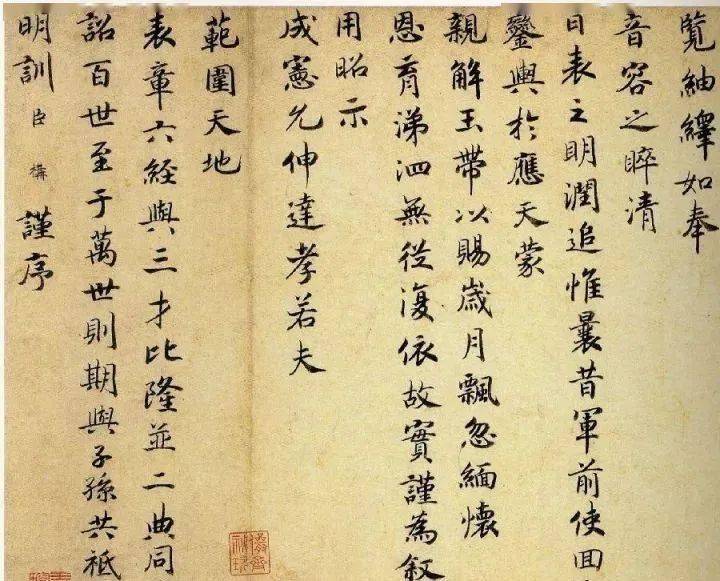 覽紬繹如奉
音容之睟清
日表之明潤追惟曩昔軍前使回
鑾輿於應天蒙
親解玉帶以賜歲月飄忽緬懷
恩育涕泗無從復依故實謹為敘
用昭示
成憲允伸達孝若夫
範圍天地
表章六經與三才比隆並二典同
詔百世至于萬世則期與子孫共祗
明訓臣構謹序